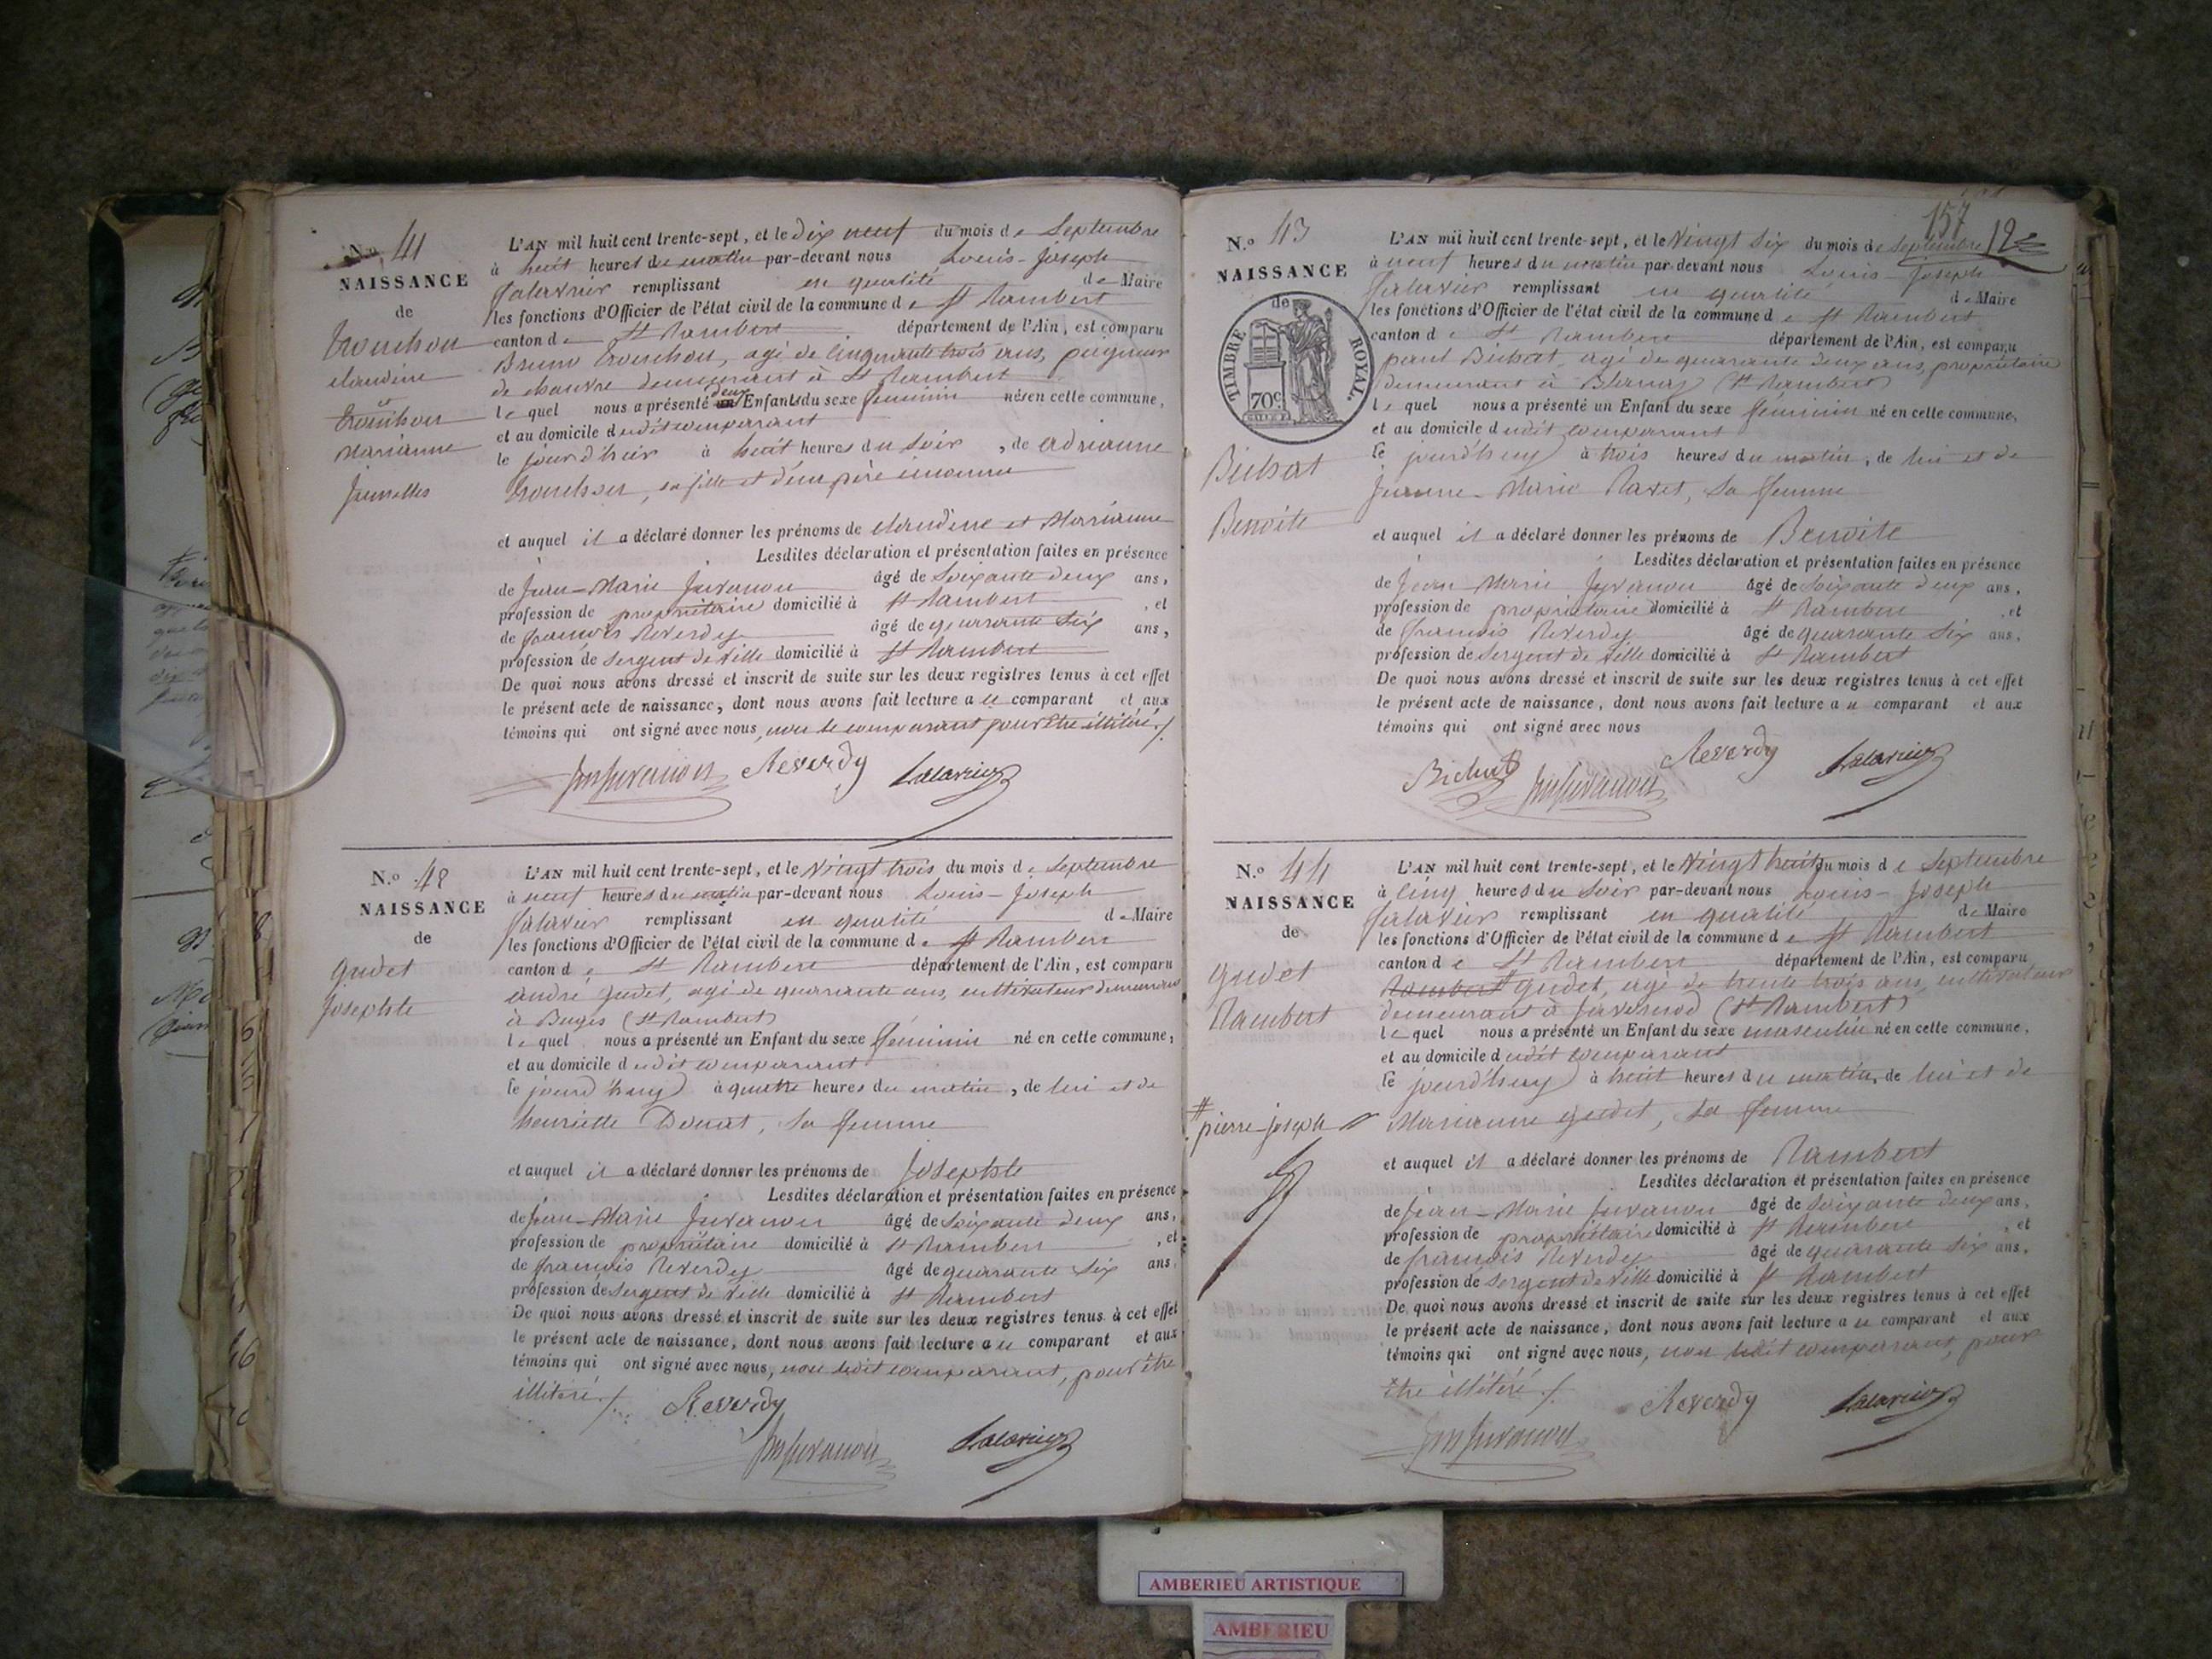 N.º 41
NAISSANCE
de
Trouchon
claudine
et
Trouchon
Marianne
jumelles
L'AN mil huit cent trente-sept, et le dix neuf du mois de Septembre
à huit heures du matin par-devant nous Louis-Joseph
Salavier remplissant en qualité de Maire
les fonctions d'Officier de l'état civil de la commune de St Rambert
canton de St Rambert département de l'Ain, est comparu
Bruno Trouchon, agé de cinquante trois ans, peigneur
de chanvre demeurant à St Rambert
lequel nous a présenté deux Enfants du sexe féminin nés en cette commune,
et au domicile dudit comparant
le jour d'hier à huit heures du soir, de Adrianne
Trouchon, sa fille et d'un père inconnu
et auquel il a déclaré donner les prénoms de claudine et Marianne
Lesdites déclaration et présentation faites en présence
de Jean-Marie Juvanon âgé de Soixante deux ans,
profession de propriétaire domicilié à St Rambert, et
de françois Reverdy âgé de quarante Six ans,
profession de Sergent de Ville domicilié à St Rambert
De quoi nous avons dressé et inscrit de suite sur les deux registres tenus à cet effet
le présent acte de naissance, dont nous avons fait lecture au comparant et aux
témoins qui ont signé avec nous, non le comparant pour être illitéré
Reverdy Salavier
N.º 42
NAISSANCE
de
Gudet
Josephte
L'AN mil huit cent trente-sept, et le Vingt trois du mois de Septembre
à neuf heures du matin par-devant nous Louis-Joseph
Salavier remplissant en qualité de Maire
les fonctions d'Officier de l'état civil de la commune de St Rambert
canton de St Rambert département de l'Ain, est comparu
andré Gudet, agé de quarante ans, cultivateur demeurant
à Buges (St Rambert)
lequel nous a présenté un Enfant du sexe féminin né en cette commune,
et au domicile dudit comparant
le jourd'huy à quatre heures du matin, de lui et de
henriette Donat, sa femme
et auquel il a déclaré donner les prénoms de Josephte
Lesdites déclaration et présentation faites en présence
de Jean-Marie Juvanon âgé de Soixante deux ans,
profession de propriétaire domicilié à St Rambert, et
de françois Reverdy âgé de quarante Six ans,
profession de Sergent de Ville domicilié à St Rambert
De quoi nous avons dressé et inscrit de suite sur les deux registres tenus à cet effet
le présent acte de naissance, dont nous avons fait lecture au comparant et aux
témoins qui ont signé avec nous, non ledit comparant, pour être
illitéré
Reverdy
Salavier
157
12
N.º 43
NAISSANCE
de
TIMBRE ROYAL.
70c
Bichat
Benoite
L'AN mil huit cent trente-sept, et le Vingt Six du mois de Septembre
à neuf heures du matin par-devant nous Louis-Joseph
Salavier remplissant en qualité de Maire
les fonctions d'Officier de l'état civil de la commune de St Rambert
canton de St Rambert département de l'Ain, est comparu
paul Bichat, agé de quarante deux ans, propriétaire
demeurant à Blanaz (St Rambert)
lequel nous a présenté un Enfant du sexe féminin né en cette commune,
et au domicile dudit comparant
le jourd'huy à trois heures du matin, de lui et de
Jeanne-Marie Ravet, sa femme
et auquel il a déclaré donner les prénoms de Benoite
Lesdites déclaration et présentation faites en présence
de Jean-Marie Juvanon âgé de Soixante deux ans,
profession de propriétaire domicilié à St Rambert, et
de françois Reverdy âgé de quarante Six ans,
profession de Sergent de Ville domicilié à St Rambert
De quoi nous avons dressé et inscrit de suite sur les deux registres tenus à cet effet
le présent acte de naissance, dont nous avons fait lecture au comparant et aux
témoins qui ont signé avec nous
Bichat Reverdy Salavier
N.º 44
NAISSANCE
de
Gudet
Rambert
# pierre-joseph
L'AN mil huit cent trente-sept, et le Vingt huit du mois de Septembre
à cinq heures du Soir par-devant nous Louis-Joseph
Salavier remplissant en qualité de Maire
les fonctions d'Officier de l'état civil de la commune de St Rambert
canton de St Rambert département de l'Ain, est comparu
Rambert # Gudet, agé de trente trois ans, cultivateur
demeurant à Javornod (St Rambert)
lequel nous a présenté un Enfant du sexe masculin né en cette commune,
et au domicile dudit comparant
le jourd'huy à huit heures du matin, de lui et de
Marianne Gudet, sa femme
et auquel il a déclaré donner les prénoms de Rambert
Lesdites déclaration et présentation faites en présence
de Jean-Marie Juvanon âgé de Soixante deux ans,
profession de propriétaire domicilié à St Rambert, et
de françois Reverdy âgé de quarante Six ans,
profession de Sergent de Ville domicilié à St Rambert
De quoi nous avons dressé et inscrit de suite sur les deux registres tenus à cet effet
le présent acte de naissance, dont nous avons fait lecture au comparant et aux
témoins qui ont signé avec nous, non ledit comparant, pour
être illitéré
Reverdy Salavier
AMBERIEU ARTISTIQUE
AMBERIEU